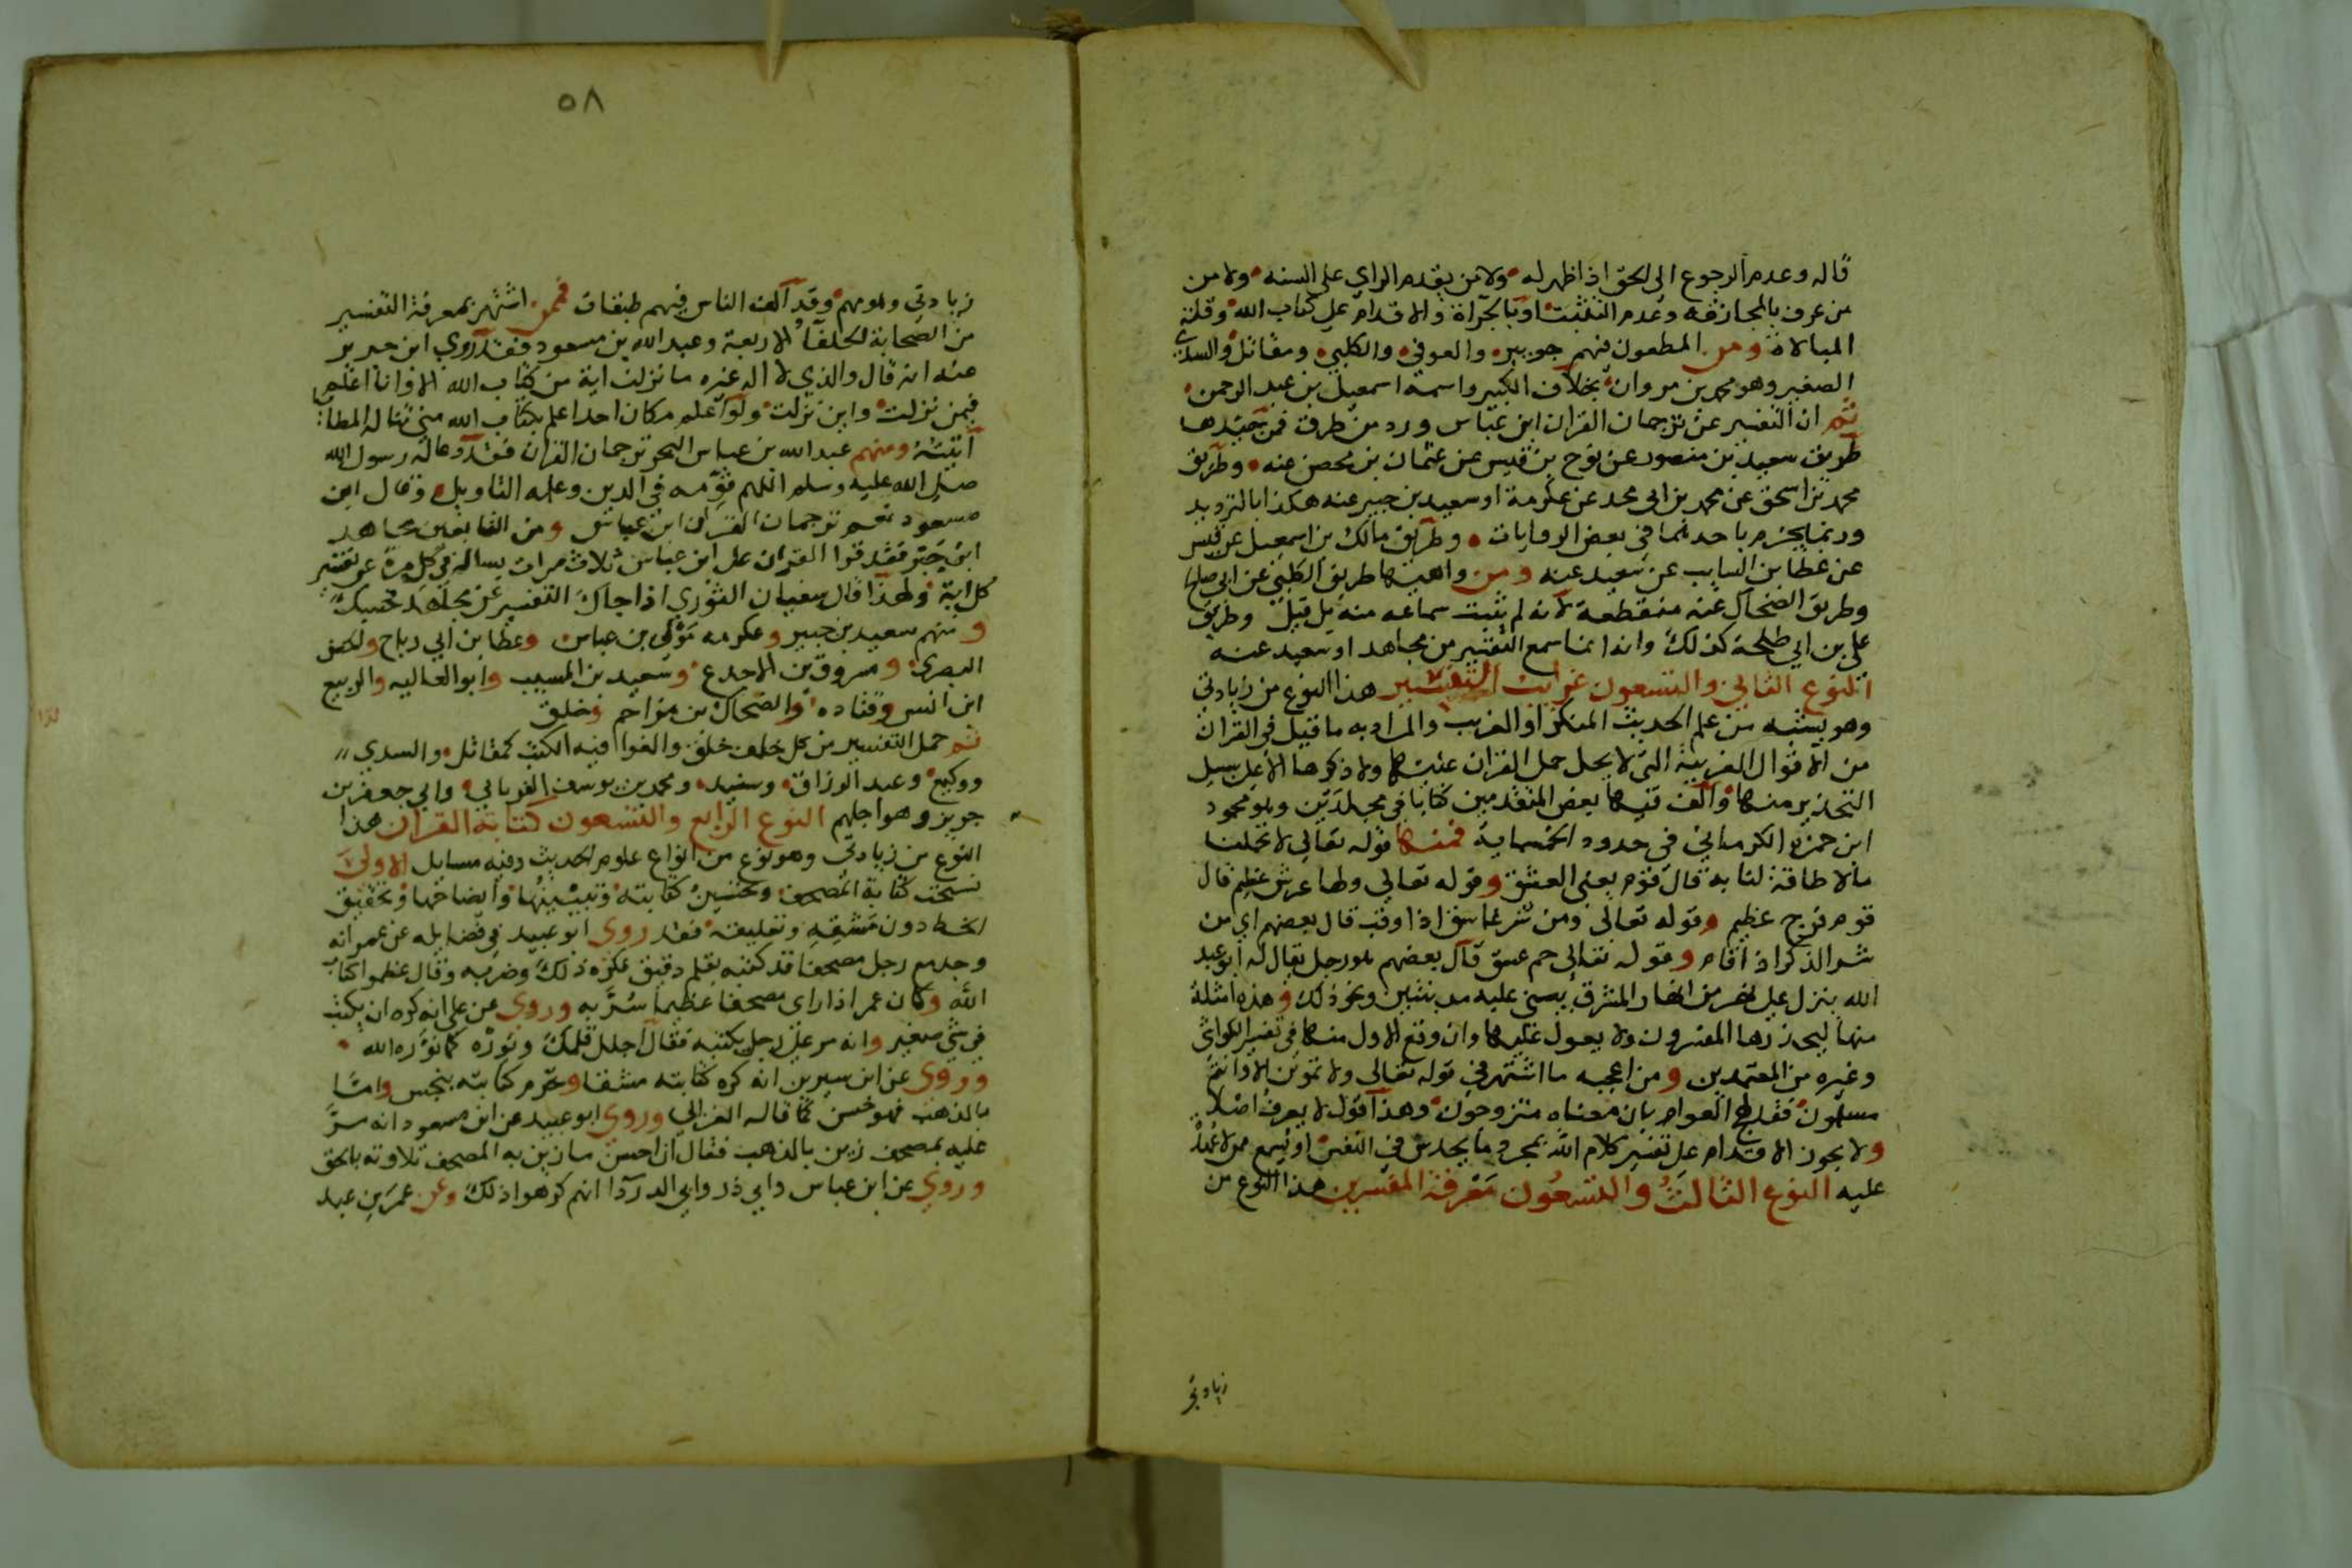 قاله وعدم الرجوع الى الحق اذا ظهر له ولا من يقدم الراي على السنه ولا من
من عرف بالمجازفه وعدم التثبت او بالجرآة والاقدام على كتاب الله وقلة
المبالاة ومن المطعون فيهم جويبر والعوفي والكلبي ومقاتل والسدي
الصغير وهو محمد بن مروان بخلاف الكبير واسمه اسمعيل بن عبد الرحمن
ثم ان التفسير عن ترجمان القران ابن عباس ورد من طرق فمن جيدها
طريق سعيد بن منصور عن نوح بن قيس عن عثمان بن محصن عنه وطريق
محمد بن اسحق عن محمد بن ابي محمد عن عكرمة او سعيد بن جبير عنه هكذا بالترديد
وربما يجزم باحدهما في بعض الروايات وطريق مالك بن اسمعيل عن قيس
عن عطا بن السايب عن سعيد عنه ومن واهيها طريق الكلبي عن ابي صالح
وطريق الضحاك عنه منقطعة لانه لم يثبت سماعه منه بل قيل وطريق
علي بن ابي طلحة كذلك وانه انما سمع التفسير من مجاهد او سعيد عنه
النوع الثاني والتسعون غرايب التفسير هذا النوع من زيادتي
وهو يشبه من علم الحديث المنكر او الغريب والمراد به ما قيل في القران
من الاقوال الغريبة التي لا يحل حمل القران عليها ولا ذكرها الا على سبيل
التحذير منها والف فيها بعض المتقدمين كتابا في مجلدين وهو محمود
ابن حمزه الكرماني في حدود الخمسماية فمنها قوله تعالى لا تحملنا
مالا طاقة لنا به قال قوم يعني العشق وقوله تعالى ولها عرش عظيم قال
قوم فرج عظيم وقوله تعالى ومن شر غاسق اذا وقب قال بعضهم اي من
شر الذكر اذا قام وقوله تعالى حم عسق قال بعضهم هو رجل يقال له ابو عبد
الله ينزل على نهر من انهار المشرق يبني عليه مدينتين ونحو ذلك وهذه امثلة
منها ليحذرها المفسرون ولا يعول عليها وان وقع الاول منها في تفسير الكواشي
وغيره من المعتمدين ومن اعجبه ما اشتهر في قوله تعالى ولا تموتن الا وانتم
مسلمون فقد العوام بان معناه متزوجون وهذا قول لا يعرف اصلا
ولا يجوز الاقدام على تفسير كلام الله بمجرد ما يحدس في النفس او يسمع ممن لا عمدة
عليه النوع الثالث والتسعون معرفة المفسرين هذا النوع من
زيادتي
٥٨
زيادتي ومهم وقد الف الناس فيهم طبقات فممن اشتهر بمعرفة التفسير
من الصحابة الخلفآء الاربعة وعبد الله بن مسعود فقد روي ابن جرير
عنه انه قال والذي لا اله غيره ما نزلت اية من كتاب الله الا وانا اعلم
فيمن نزلت واين نزلت ولو اعلم مكان احدا اعلم بكتاب الله مني تناله المطايا
اتيته ومنهم عبد الله بن عباس البحر ترجمان القران فقد دعا له رسول الله
صلى الله عليه وسلم اللهم فقهه في الدين وعلمه التاويل وقال ابن
مسعود نعم ترجمان القران ابن عباس ومن التابعين مجاهد
ابن جبر فقد قرا القران على ابن عباس ثلاث مرات يساله في كل مرة عن تفسير
كل اية ولهذا قال سفيان الثوري اذا جاك التفسير عن مجاهد فحسبك
ومنهم سعيد بن جبير وعكرمه مولى بن عباس وعطا بن ابي رباح والحسن
البصري ومسروق بن الاجدع وسعيد بن المسيب وابو العاليه والربيع
ابن انس وقتاده والضحاك بن مزاحم وخلق
ثم حمل التفسير من كل خلف خلق والفوا فيه الكتب كمقاتل والسدي
ووكيع وعبد الرزاق وسنيد ومحمد بن يوسف الفريابي وابي جعفر بن
جرير وهو اجلهم النوع الرابع والتسعون كتابة القران هذا
النوع من زيادتي وهو نوع من انواع علوم الحديث وفيه مسايل الاولى
تستحب كتابة المصحف وتحسين كتابته وتبيينها وايضاحها وتحقيق
الخط دون مشقه وتعليقه فقد روى ابو عبيد في فضايله عن عمر انه
وجد مع رجل مصحفا قد كتبه بقلم دقيق فكره ذلك وضربه وقال عظموا كتاب
الله وكان عمر اذا راى مصحفا عظيما سر به وروي عن علي انه كره ان يكتب
في شي صغير وانه مر على رجل يكتبه فقال اجلل قلمك ونوره كما نوره الله
وروي عن ابن سيرين انه كره كتابته مشقا وتحرم كتابته بنجس واما
بالذهب فهو حسن كما قاله الغزالي وروي ابو عبيد عن ابن مسعود انه مر
عليه بمصحف زين بالذهب فقال ان احسن ما زين به المصحف تلاوته بالحق
وروي عن ابن عباس وابي ذر وابي الدردآ انهم كرهوا ذلك وعن عمر بن عبد